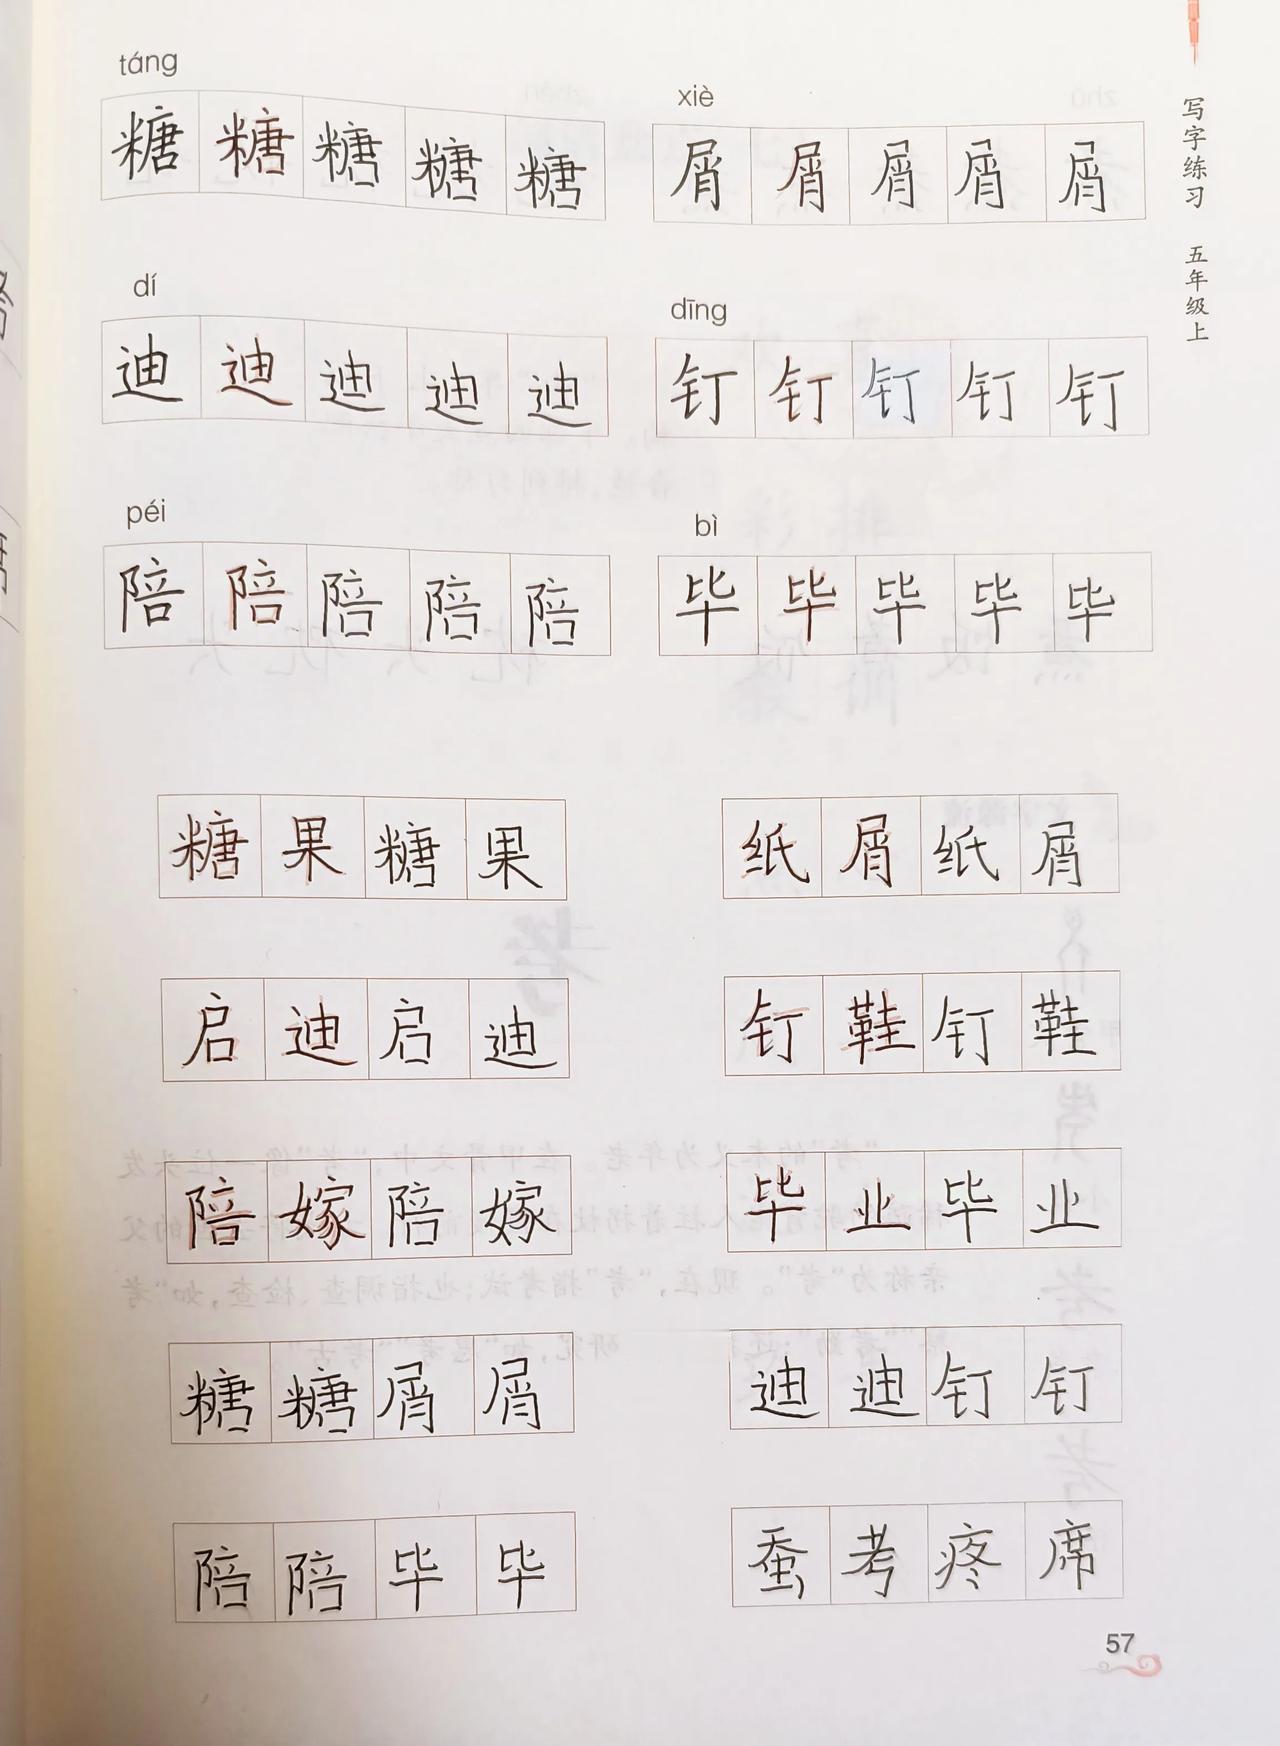 táng
糖糖糖糖糖
xiè
屑屑屑屑屑
dí
迪迪迪迪迪
dīng
钉钉钉钉钉
péi
陪陪陪陪陪
bì
毕毕毕毕毕
糖果糖果
纸屑纸屑
启迪启迪
钉鞋钉鞋
陪嫁陪嫁
毕业毕业
糖糖屑屑
迪迪钉钉
陪陪毕毕
蚕考疼席
写字练习 五年级上
57